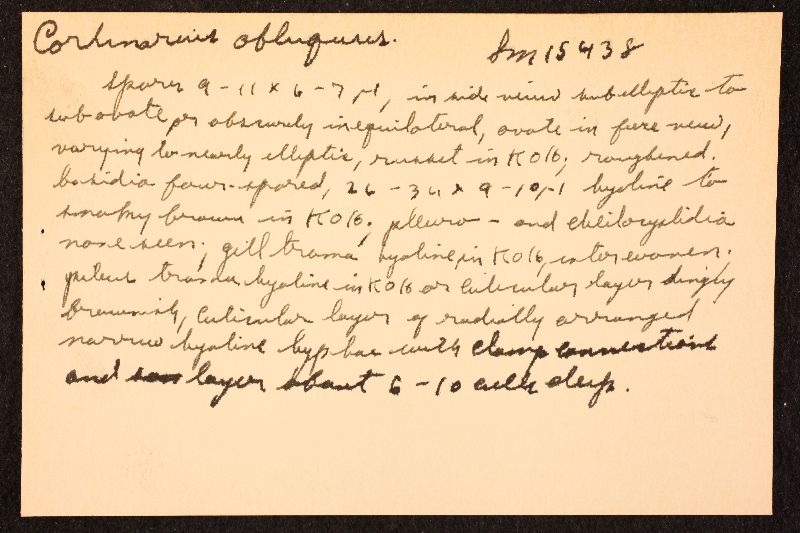 Cortinarius obliquus. Sm 15438
Spores 9-11 x 6-7 µ, in side view subelliptic to
subovate or obscurely inequilateral, ovate in face view,
varying to nearly elliptic, russet in KOH; roughened.
basidia four-spored, 26-34 x 9-10 µ hyaline to
smoky brown in KOH; pleuro- and cheilocystidia
none seen; gill trama hyaline in KOH, interwoven.
pileus trama hyaline in KOH or cuticular layer dingy
brownish, cuticular layer of radially arranged
narrow hyaline hyphae with clamp connections
and layer about 6-10 cells deep.